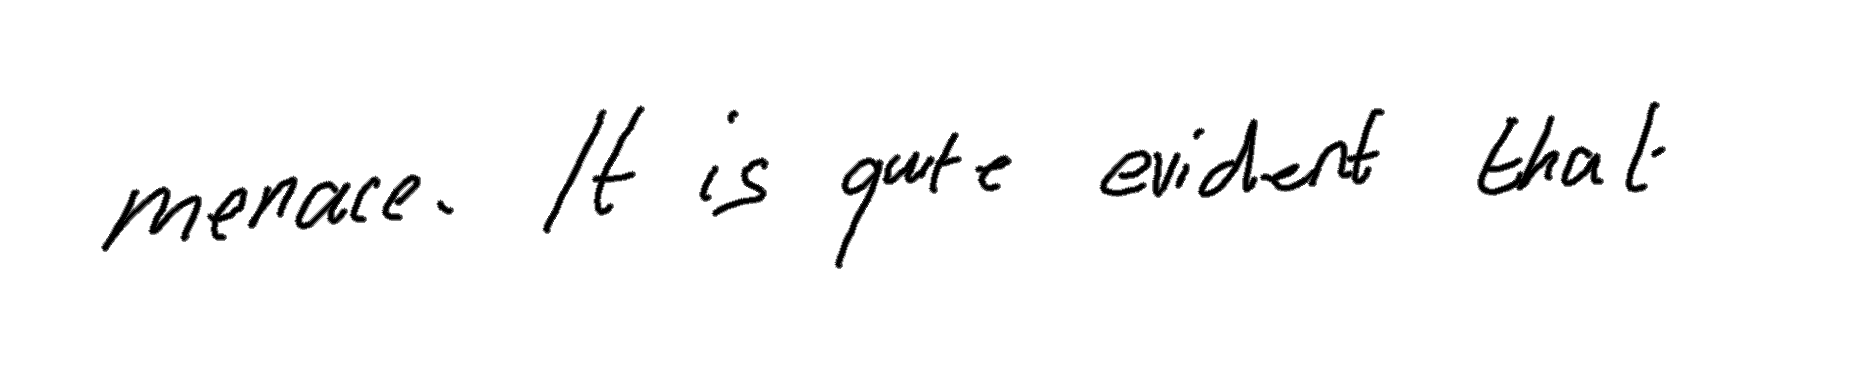 menace. It is quite evident that